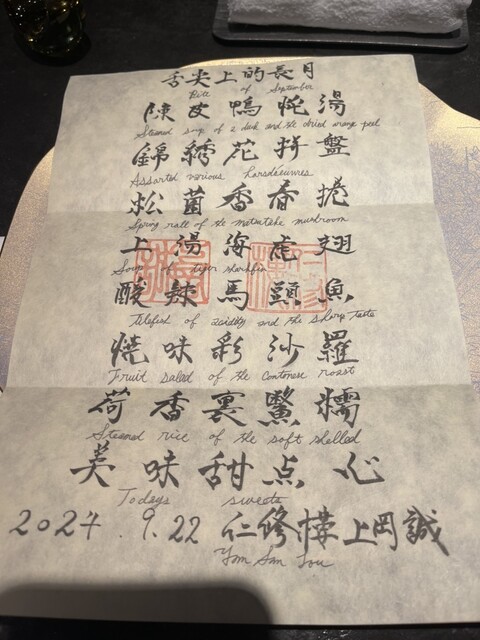 舌尖上的長月
Bite of September
陳皮鴨炖湯
Steamed soup of a duck and the dried orange peel
錦繍花拼盤
Assorted various horsdoeuvres
松茸香春捲
Spring roll of the matsutake mushroom
上湯海虎翅
Soup of tiger sharkfin
酸辣馬頭魚
Tilefish of acidity and the sharp taste
焼味彩沙羅
Fruit salad of the Cantonese roast
荷香裹鱉糯
Steamed rice of the soft shelled
美味甜点心
Todays sweets
2024.9.22 仁修樓上岡誠